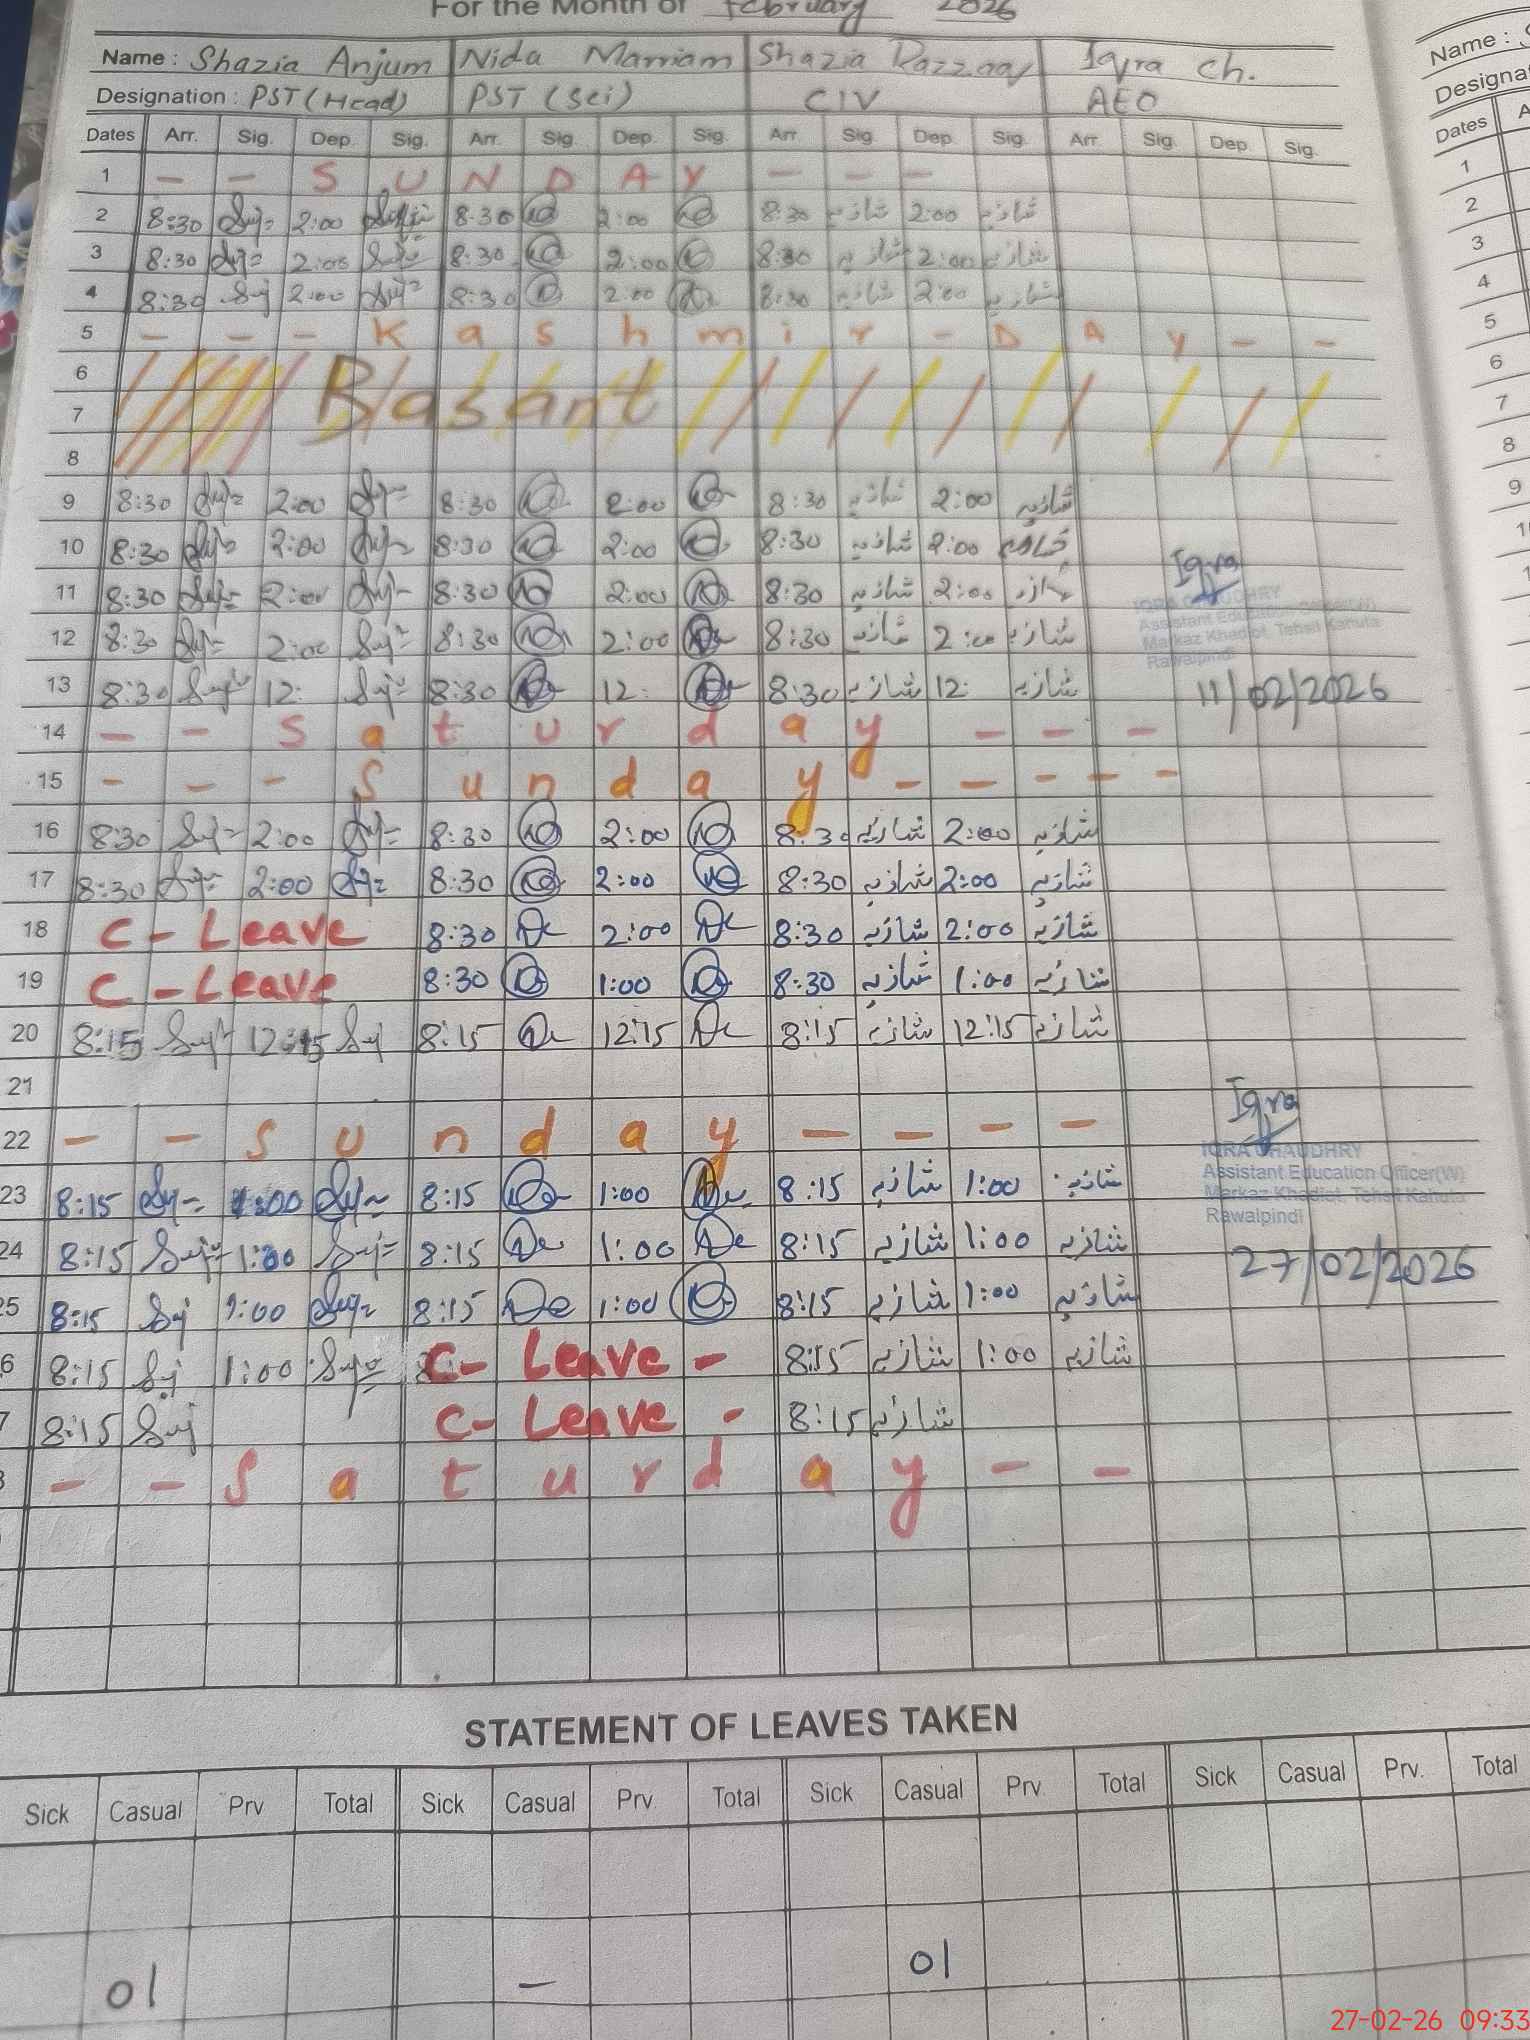 For the Month of February 2026
Name : Shazia Anjum Nida Marriam Shazia Razzaq Iqra Ch.
Designation : PST (Head) PST (Sci) CIV AEO
Dates Arr. Sig. Dep. Sig. Arr. Sig. Dep. Sig. Arr. Sig. Dep. Sig. Arr. Sig. Dep. Sig.
1 - - S U N D A Y - - -
2 8:30 2:00 8:30 2:00 8:30 شازیہ 2:00 شازیہ
3 8:30 2:00 8:30 2:00 8:30 شازیہ 2:00 شازیہ
4 8:30 2:00 8:30 2:00 8:30 شازیہ 2:00 شازیہ
5 - - - K a s h m i r - D A y - -
6
7 Basant
8
9 8:30 2:00 8:30 2:00 8:30 شازیہ 2:00 شازیہ
10 8:30 2:00 8:30 2:00 8:30 شازیہ 2:00
11 8:30 2:00 8:30 2:00 8:30 شازیہ 2:00
12 8:30 2:00 8:30 2:00 8:30 شازیہ 2:00 شازیہ
13 8:30 12: 8:30 12: 8:30 شازیہ 12: شازیہ
Iqra
IQRA CHAUDHRY
Assistant Education Officer(W)
Markaz Khadiot, Tehsil Kahuta
Rawalpindi
11/02/2026
14 - - S a t u r d a y - - -
15 - - - S u n d a y - - - - -
16 8:30 2:00 8:30 2:00 8:30 شازیہ 2:00 شازیہ
17 8:30 2:00 8:30 2:00 8:30 شازیہ 2:00 شازیہ
18 C - Leave 8:30 2:00 8:30 شازیہ 2:00 شازیہ
19 C - Leave 8:30 1:00 8:30 شازیہ 1:00 شازیہ
20 8:15 12:15 8:15 12:15 8:15 شازیہ 12:15 شازیہ
21
22 - - S u n d a y - - - -
23 8:15 1:00 8:15 1:00 8:15 شازیہ 1:00 شازیہ
24 8:15 1:00 8:15 1:00 8:15 شازیہ 1:00 شازیہ
25 8:15 1:00 8:15 1:00 8:15 شازیہ 1:00 شازیہ
6 8:15 1:00 C- Leave - 8:15 شازیہ 1:00 شازیہ
7 8:15 C- Leave - 8:15 شازیہ
- - S a t u r d a y - -
Iqra
IQRA CHAUDHRY
Assistant Education Officer(W)
Markaz Khadiot, Tehsil Kahuta
Rawalpindi
27/02/2026
STATEMENT OF LEAVES TAKEN
Sick Casual Prv Total Sick Casual Prv. Total Sick Casual Prv. Total Sick Casual Prv. Total
01 - 01
Name :
Designa
Dates A
1
2
3
4
5
6
7
8
9
27-02-26 09:33